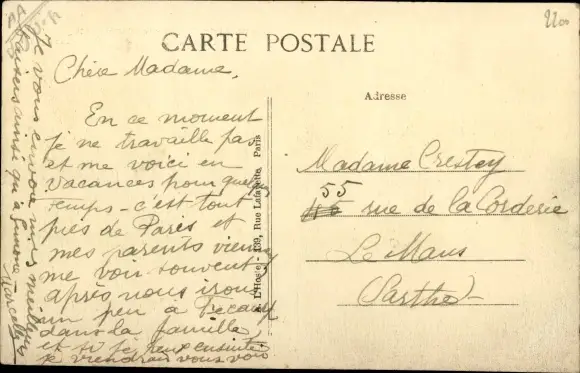 2200
CARTE POSTALE
Chère Madame,
En ce moment
je ne travaille pas
et me voici en
vacances pour quelques
temps - c'est tout
près de Paris et
mes parents viennent
me voir souvent
après nous irons
un peu à Fécamp
dans la famille
et si je peux ensuite
je viendrai vous voir
Je vous envoie mes meilleurs
baisers ainsi qu'à Simone -
Marcelle
L'Hoste - 139, Rue Lafayette Paris
Adresse
Madame Crestey
55
rue de la Corderie
Le Mans
(Sarthe) -